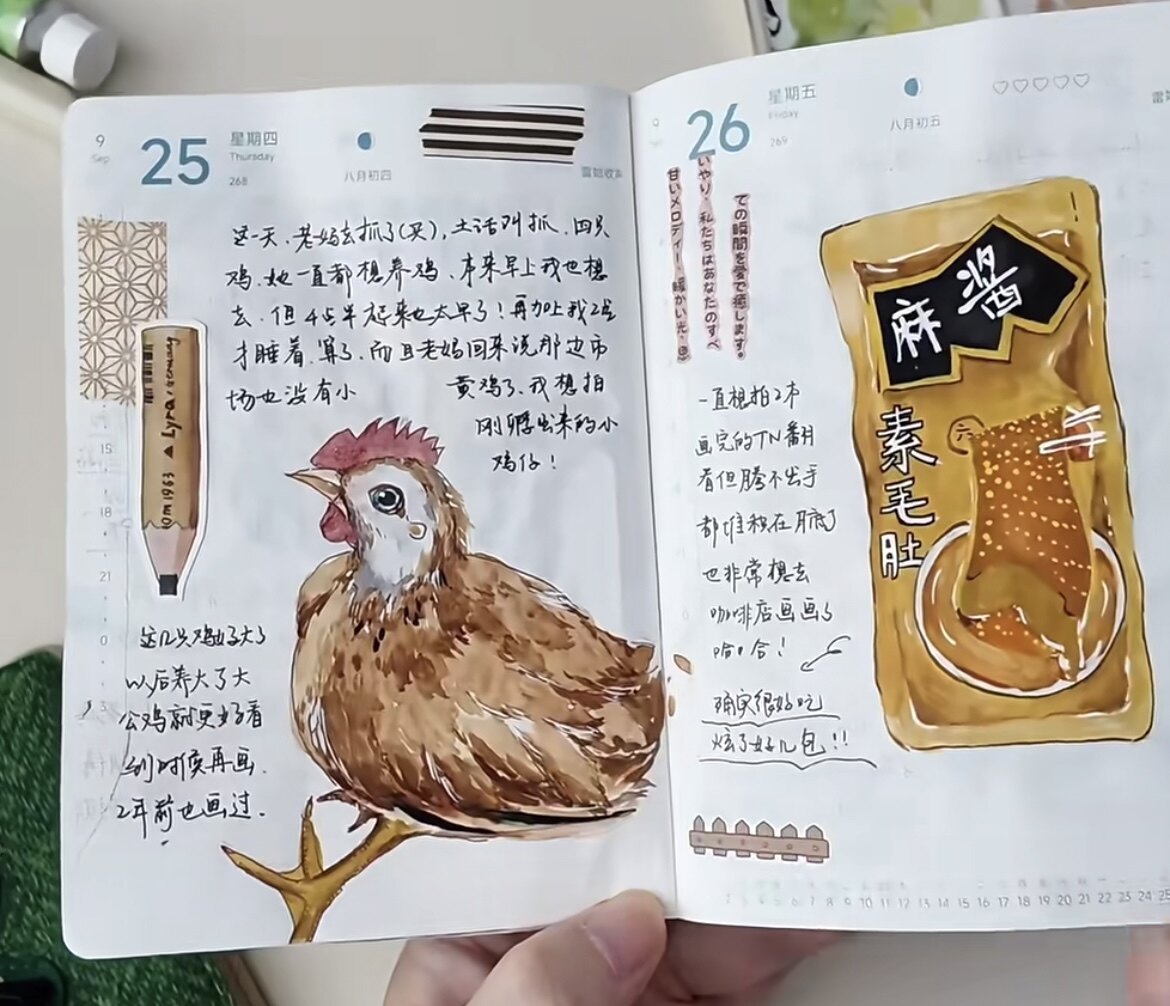 9
Sep
25
星期四
Thursday
268
八月初四
雷始收声
这一天、老妈去抓了(买),土话叫抓、四只
鸡、她一直都想养鸡、本来早上我也想
去、但4点半起来也太早了!再加上我2点
才睡着、算了、而且老妈回来说那边市
场也没有小
黄鸡了、我想拍
刚孵出来的小
鸡仔!
Lyra
10m 1963
15
18
21
0
3
这几只鸡好大了
以后养大了大
公鸡就更好看
到时候再画.
2年前也画过.
9
26
星期五
Friday
269
八月初五
いやり、私たちはあなたのすべ
ての瞬間を愛で癒します。
甘いメロディー、暖かい光、思
一直想拍2本
画完的TN翻
看但腾不出手
都堆积在那了
也非常想去
咖啡店画画了
哈哈!
确实很好吃
炫了好几包!!
麻酱
素毛肚
6 7 8 9 10 11 12 13 14 15 16 17 18 19 20 21 22 23 24 25